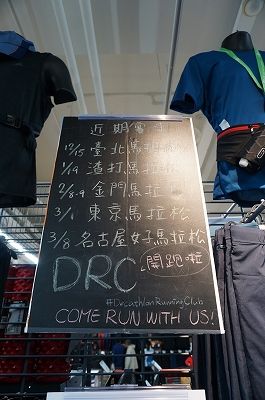 近期賽事
12/15 臺北馬拉松
1/19 渣打馬拉松
2/8-9 金門馬拉松
3/1 東京馬拉松
3/8 名古屋女子馬拉松
DRC 開跑啦
#DecathlonRunningClub
COME RUN WITH US!